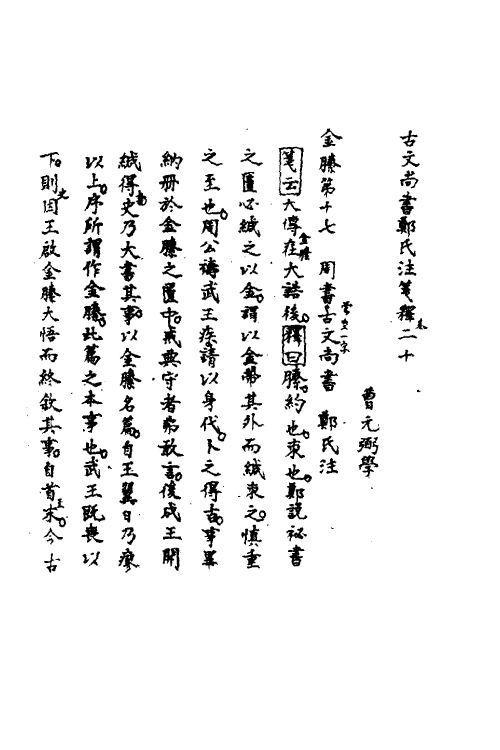 古文尚書鄭氏注箋釋卷二十
曹元弼學
金縢第十七 周書古文尚書 鄭氏注
箋云大傳金縢在大誥後釋曰縢約也束也鄭說祕書
之匱必緘之以金謂以金帶其外而緘束之慎重
之至也周公禱武王疾請以身代卜之得吉事畢
納册於金縢之匱中戒典守者弗敢言後成王開
緘得書史乃大書其事以金縢名篇自王翼日乃瘳
以上序所謂作金縢此篇之本事也武王既喪以
下則因王啟金縢大悟而終敘其事自首至末今古